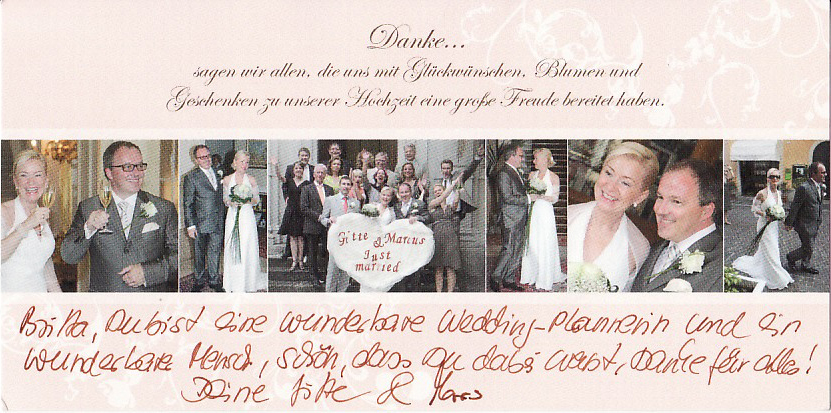 Danke...
sagen wir allen, die uns mit Glückwünschen, Blumen und
Geschenken zu unserer Hochzeit eine große Freude bereitet haben.
Gitte & Marcus
Just
married
Britta, Du bist eine wunderbare Wedding-Plannerin und ein
wunderbare Mensch, schön, dass Du dabei warst, Danke für alles!
Deine Gitte &